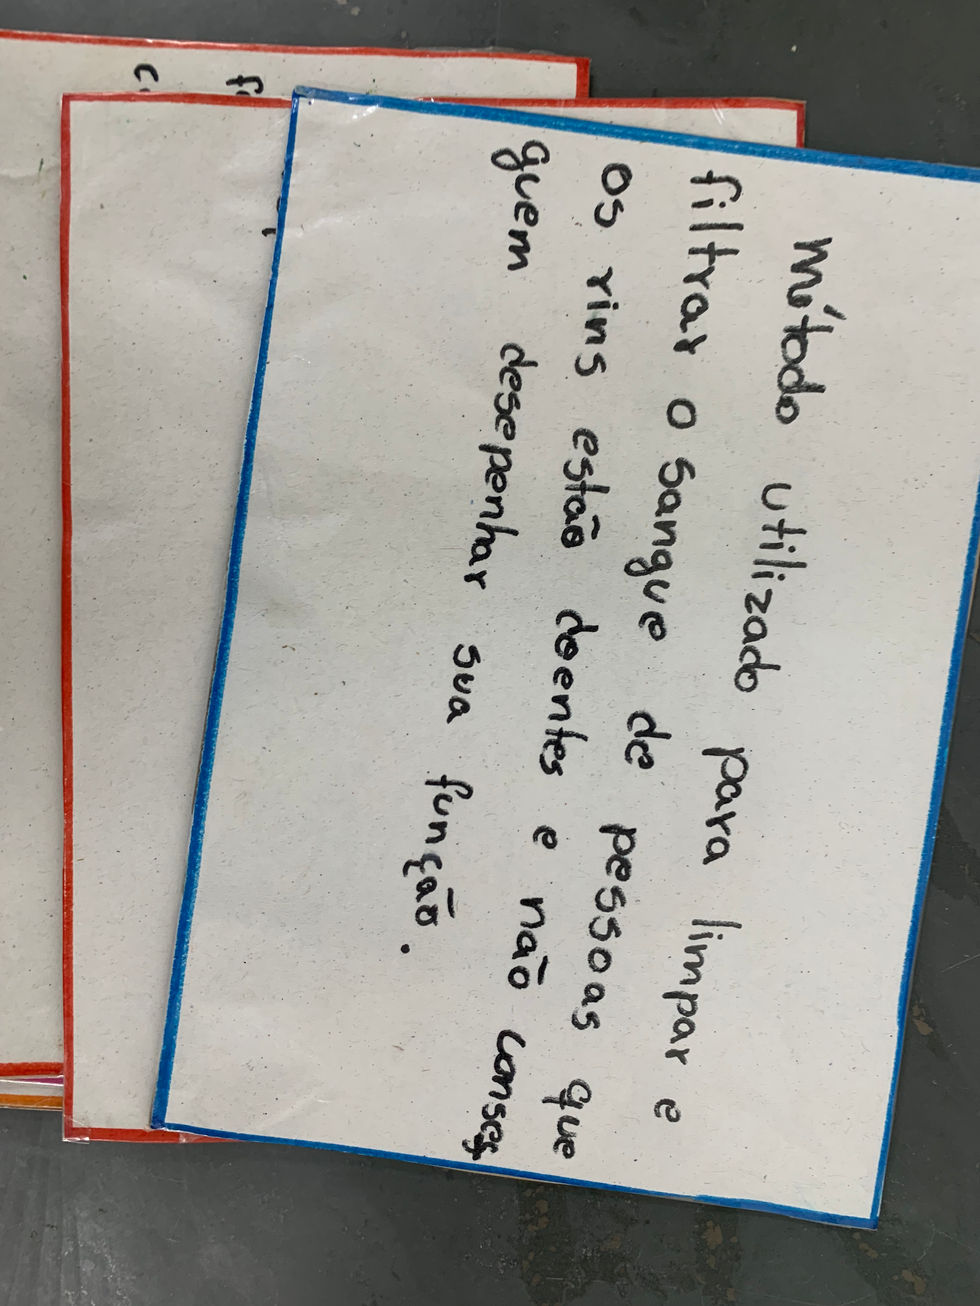 Método utilizado para limpar e
filtrar o sangue de pessoas que
os rins estão doentes e não conse
guem desepenhar sua função.